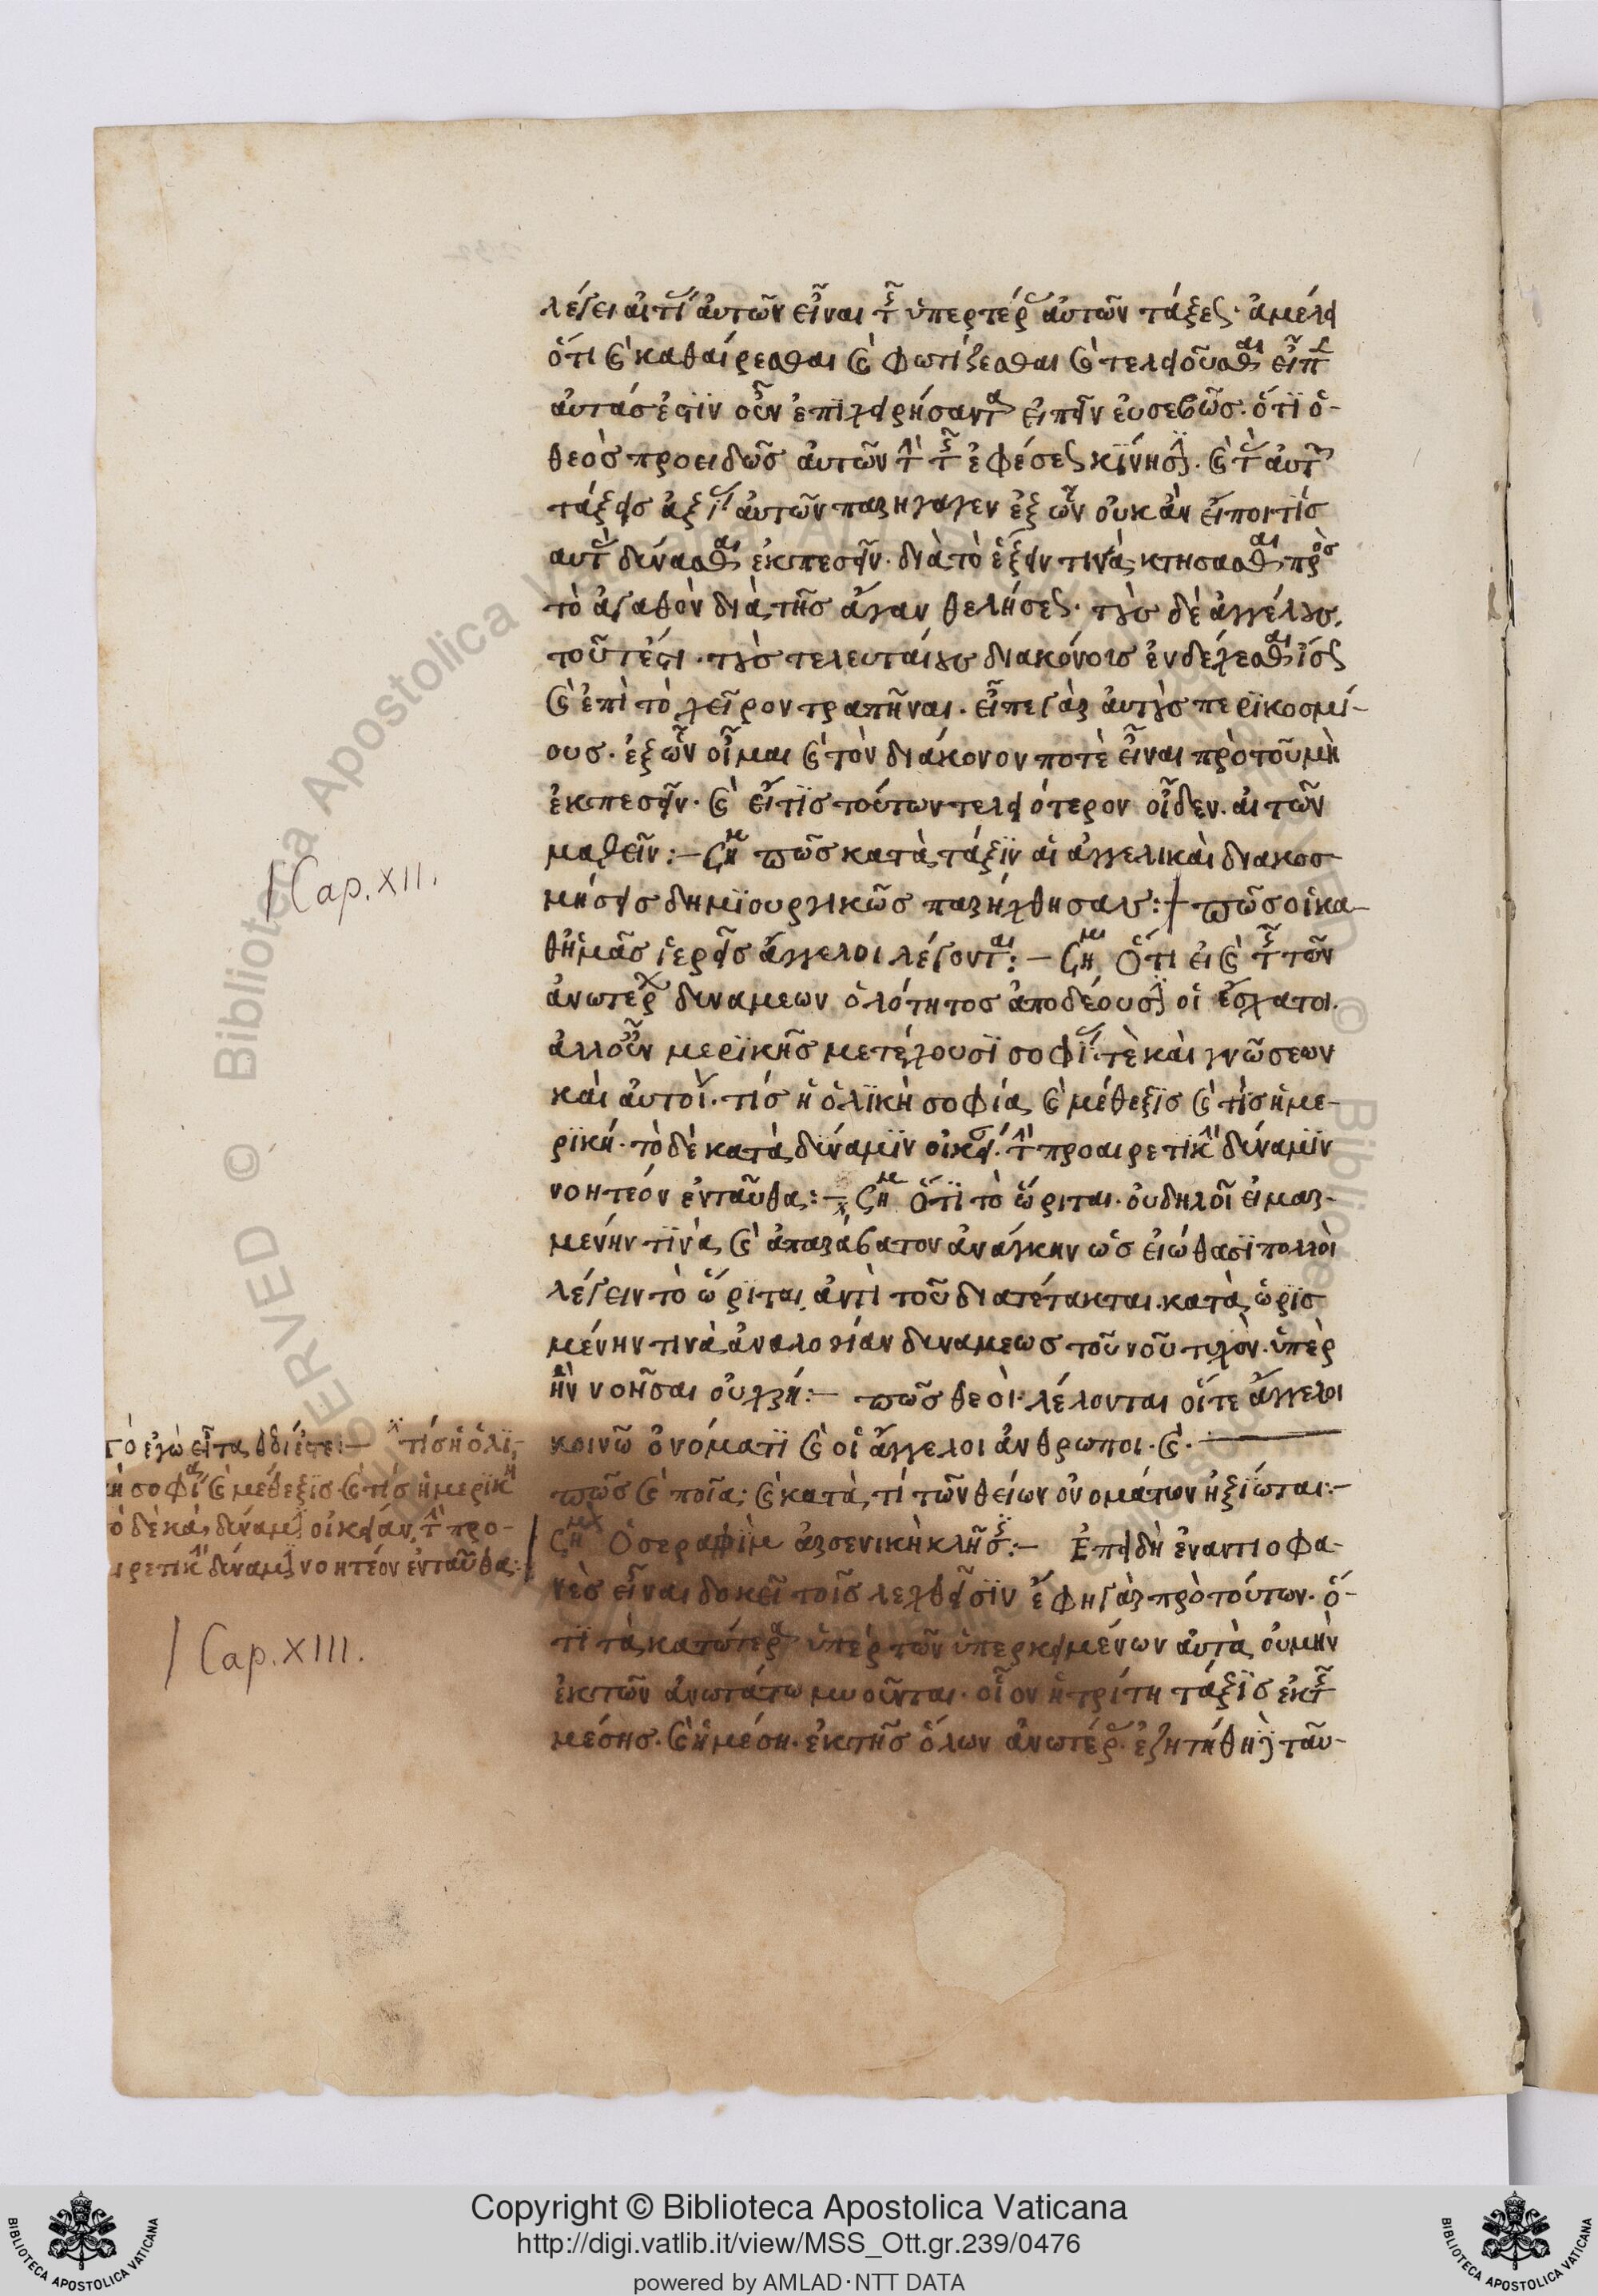 λέγει αἰτί αὐτῶν εἶναι τ ὑπερτέρ αὐτῶν τάξεις· ἀμέλει
ὅτι καὶ καθαίρεσθαι καὶ φωτίζεσθαι καὶ τελειοῦσθαι εἶπ
αὐτάς ἐστϊν οὖν ἐπϊχειρήσαντα εἰπεῖν εὐσεβῶς· ὅτϊ ὁ-
θεὸς προειδὼς αὐτῶν τὴν τῆς ἐφέσεως κίνησϊν· καὶ
τάξεις ἀξί αὐτῶν παρήγαγεν ἐξ ὧν οὐκ ἂν εἴποι τίς
αὐτ δύνασθαι ἐκπεσεῖν· διὰ τὸ ἕξϊν τινὰ κτήσασθαι πρὸς
τὸ ἀγαθὸν διὰ τῆς ἄγαν θελήσεως· τοὺς δὲ ἀγγέλους,
τοῦτέστι· τοὺς τελευταίους διακόνοις ἐνδέχεσθαι ἴσως
καὶ ἐπὶ τὸ χεῖρον τραπῆναι· εἶπε γὰρ αὐτοὺς περϊκοσμί-
ους· ἐξ ὧν οἶμαι καὶ τὸν διάκονον ποτὲ εἶναι πρὸ τοῦ μὴ
ἐκπεσεῖν· καὶ εἴ τϊς τούτων τελειότερον οἶδεν· αἰτῶν
μαθεῖν:– ση πῶς κατὰ τάξϊν αἱ ἀγγελικαὶ διακοσ-
μήσεις δημϊουργικῶς παρήχθησαν:– πῶς οἱ κα-
θἡμᾶς ἱερεῖς ἄγγελοι λέγονται:– ση Ὅτι εἰ καὶ τῆς τῶν
ἀνωτέρ δυνάμεων ὁλότητος ἀποδέουσϊν οἱ ἔσχατοι.
ἀλλοὖν μερϊκῆς μετέχουσϊ σοφί τὲ καὶ γνώσεων
καὶ αὐτοὶ· τίς ἡ ὁλϊκὴ σοφία καὶ μέθεξϊς καὶ τίς ἡ με-
ρϊκή· τὸ δὲ κατὰ δύναμϊν οἰκεί· τὴν προαιρετικὴν δύναμϊν
νοητέον ἐνταῦθα:– ση Ὅτϊ τὸ ὥριται· οὐ δηλοῖ εἱμαρ-
μένην τϊνὰ καὶ ἀπαράβατον ἀνάγκην ὡς εἰώθασϊ πολλοὶ
λέγειν τὸ ὥριται, ἀντὶ τοῦ διατέτακται· κατὰ ὡρϊσ
μένην τινὰ ἀναλογίαν δυνάμεως τοῦ νοῦ τυχὸν· ὑπὲρ
ἣν νοῆσαι οὐ χρή:– πῶς θεοὶ λέγονται οἵτε ἄγγελοι
κοινῶ ὀνόματϊ καὶ οἱ ἄγγελοι ἄνθρωποι· καὶ·
πῶς καὶ ποῖα; καὶ κατὰ τί τῶν θείων ὀνομάτων ἠξίωται:–
ση Ὁ σεραφὶμ ἀρσενικὴ κλῆσις:– Ἐπειδὴ ἐναντιοφα-
νὲς εἶναι δοκεῖ τοῖς λεχθεῖσϊν ἔφη γὰρ πρὸ τούτων· ὅ-
τϊ τὰ κατώτερα ὑπὲρ τῶν ὑπερκειμένων αὐτὰ οὐ μὴν
ἐκ τῶν ἀνωτάτω μυοῦνται· οἷον ἡ τρίτη τάξϊς ἐκ τῆς
μέσης· καὶ ἡ μέση· ἐκ τῆς ὅλων ἀνωτέρ· ἐζητήθη ταῦ-
/ Cap. XII.
τὸ ἐγὼ εἶτα διέστε:– τίς ἡ ὁλϊ-
κὴ σοφί καὶ μέθεξϊς· καὶ τίς ἡ μερϊκὴ
ὁ δὲ κατὰ δύναμϊν οἰκείαν, τὴν προ-
ιρετικὴν δύναμϊν νοητέον ἐνταῦθα:
/ Cap. XIII.
Copyright © Biblioteca Apostolica Vaticana
http://digi.vatlib.it/view/MSS_Ott.gr.239/0476
powered by AMLAD·NTT DATA